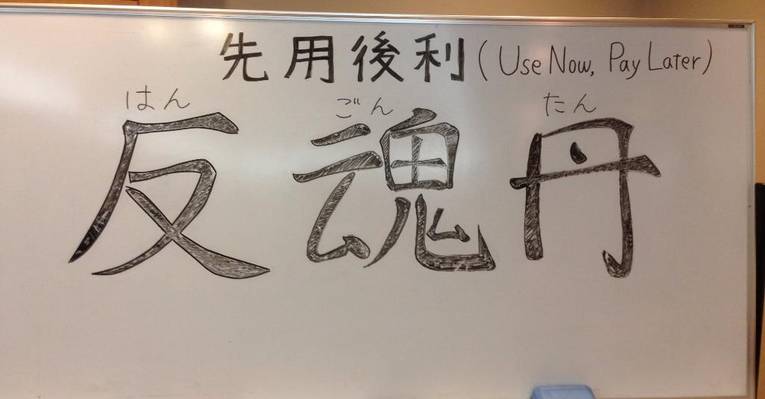 先用後利(Use Now, Pay Later)
はん ごん たん
反魂丹